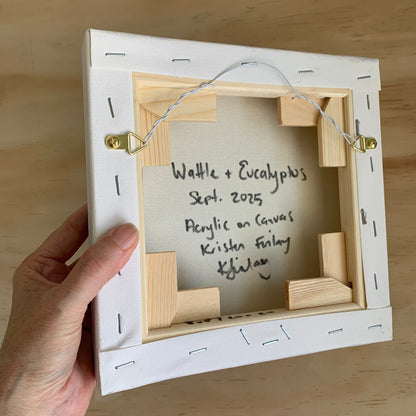 Wattle + Eucalyptus
Sept. 2025
Acrylic on Canvas
Kristen Finlay
KFinlay